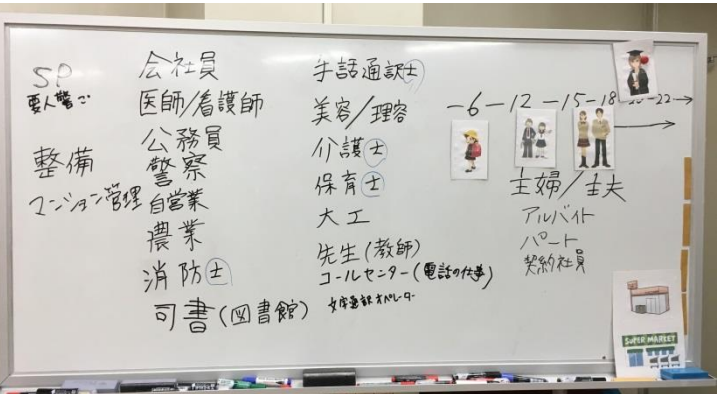 SP
要人警ご
整備
マンション管理
会社員
医師/看護師
公務員
警察
自営業
農業
消防士
司書(図書館)
手話通訳士
美容/理容
介護士
保育士
大工
先生(教師)
コールセンター(電話の仕事)
文字通訳オペレーター
-6-12-15-18-20-22→
主婦/主夫
アルバイト
パート
契約社員
SUPER MARKET